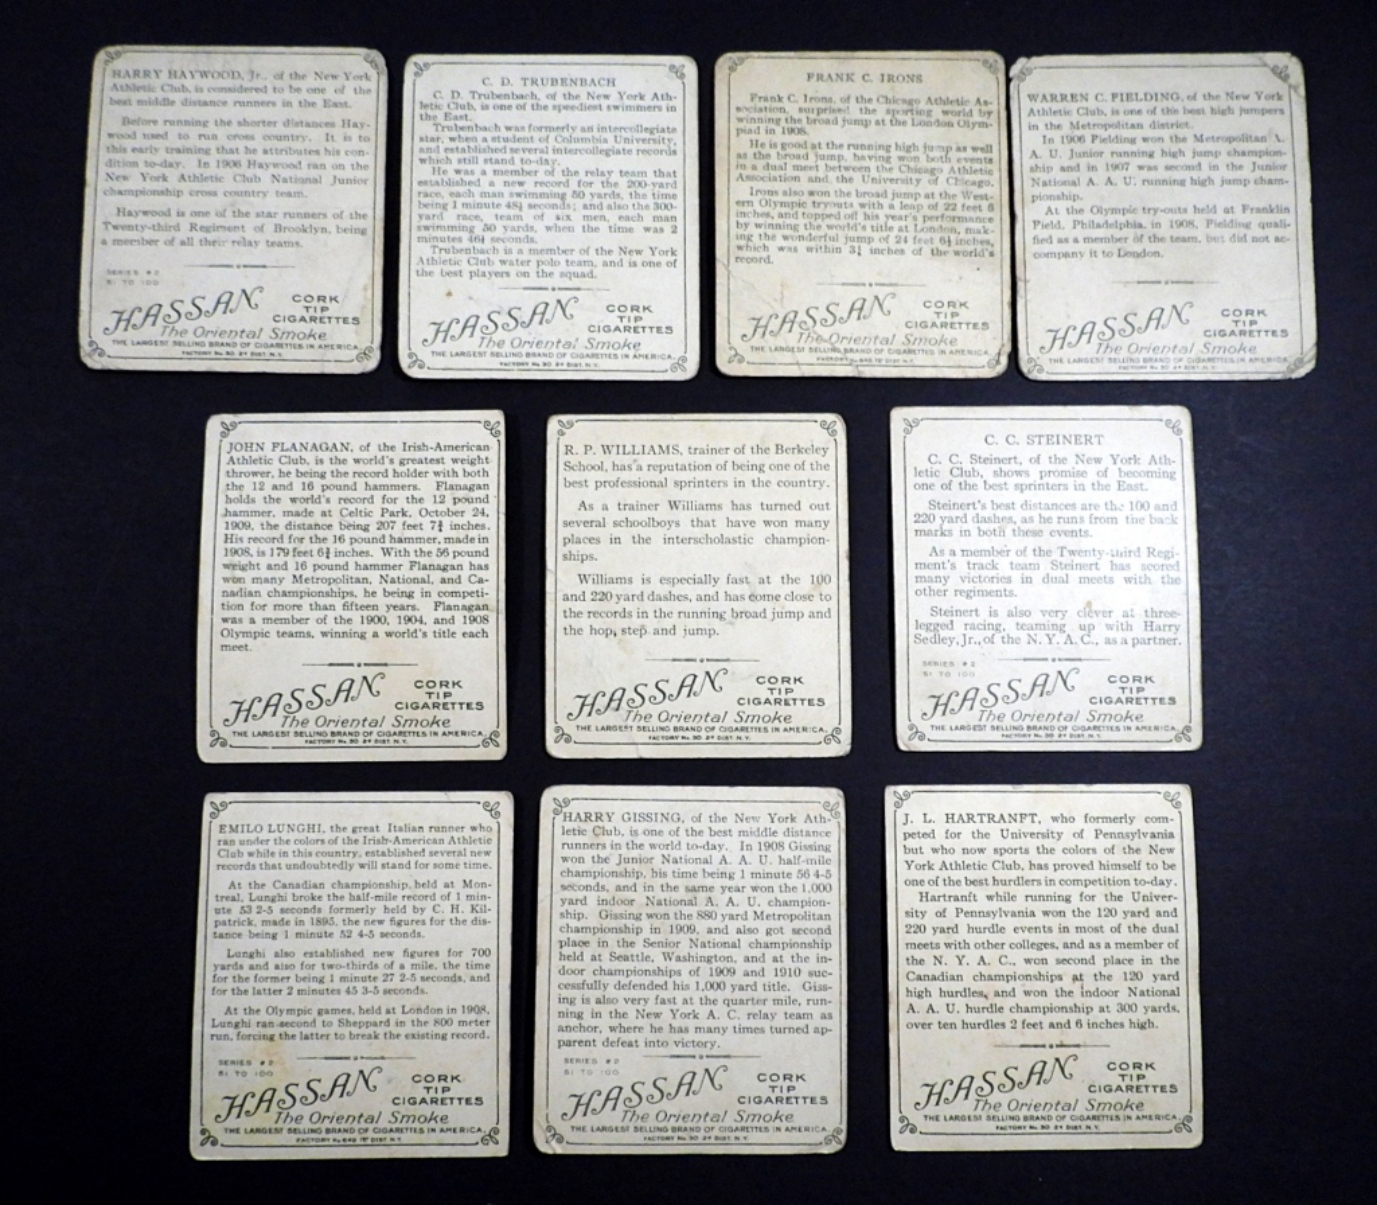 HARRY HAYWOOD, Jr., of the New York
Athletic Club, is considered to be one of the
best middle distance runners in the East.
Before running the shorter distances Hay-
wood used to run cross country. It is to
this early training that he attributes his con-
dition to-day. In 1906 Haywood ran on the
New York Athletic Club National Junior
championship cross country team.
Haywood is one of the star runners of the
Twenty-third Regiment of Brooklyn, being
a member of all their relay teams.
SERIES #2
51 TO 100
HASSAN
CORK
TIP
CIGARETTES
The Oriental Smoke
THE LARGEST SELLING BRAND OF CIGARETTES IN AMERICA.
FACTORY No. 30 2d DIST. N.Y.
C. D. TRUBENBACH
C. D. Trubenbach, of the New York Ath-
letic Club, is one of the speediest swimmers in
the East.
Trubenbach was formerly an intercollegiate
star, when a student of Columbia University,
and established several intercollegiate records
which still stand to-day.
He was a member of the relay team that
established a new record for the 200-yard
race, each man swimming 50 yards, the time
being 1 minute 48⅘ seconds; and also the 300-
yard race, team of six men, each man
swimming 50 yards, when the time was 2
minutes 46⅘ seconds.
Trubenbach is a member of the New York
Athletic Club water polo team, and is one of
the best players on the squad.
HASSAN
CORK
TIP
CIGARETTES
The Oriental Smoke
THE LARGEST SELLING BRAND OF CIGARETTES IN AMERICA.
FACTORY No. 30 2d DIST. N.Y.
FRANK C. IRONS
Frank C. Irons, of the Chicago Athletic As-
sociation, surprised the sporting world by
winning the broad jump at the London Olym-
piad in 1908.
He is good at the running high jump as well
as the broad jump, having won both events
in a dual meet between the Chicago Athletic
Association and, the University of Chicago.
Irons also won the broad jump at the West-
ern Olympic tryouts with a leap of 22 feet 6
inches, and topped off his year's performance
by winning the world's title at London, mak-
ing the wonderful jump of 24 feet 6½ inches,
which was within 3¼ inches of the world's
record.
HASSAN
CORK
TIP
CIGARETTES
The Oriental Smoke
THE LARGEST SELLING BRAND OF CIGARETTES IN AMERICA.
FACTORY No. 649 1st DIST. N.Y.
WARREN C. FIELDING, of the New York
Athletic Club, is one of the best high jumpers
in the Metropolitan district.
In 1906 Fielding won the Metropolitan A.
A. U. Junior running high jump champion-
ship and in 1907 was second in the Junior
National A. A. U. running high jump cham-
pionship.
At the Olympic try-outs held at Franklin
Field, Philadelphia, in 1908, Fielding quali-
fied as a member of the team, but did not ac-
company it to London.
HASSAN
CORK
TIP
CIGARETTES
The Oriental Smoke
THE LARGEST SELLING BRAND OF CIGARETTES IN AMERICA.
FACTORY No. 30 2d DIST. N.Y.
JOHN FLANAGAN, of the Irish-American
Athletic Club, is the world's greatest weight
thrower, he being the record holder with both
the 12 and 16 pound hammers. Flanagan
holds the world's record for the 12 pound
hammer, made at Celtic Park, October 24,
1909, the distance being 207 feet 7¾ inches.
His record for the 16 pound hammer, made in
1908, is 179 feet 6¾ inches. With the 56 pound
weight and 16 pound hammer Flanagan has
won many Metropolitan, National, and Ca-
nadian championships, he being in competi-
tion for more than fifteen years. Flanagan
was a member of the 1900, 1904, and 1908
Olympic teams, winning a world's title each
meet.
HASSAN
CORK
TIP
CIGARETTES
The Oriental Smoke
THE LARGEST SELLING BRAND OF CIGARETTES IN AMERICA.
FACTORY No. 30 2d DIST. N.Y.
R. P. WILLIAMS, trainer of the Berkeley
School, has a reputation of being one of the
best professional sprinters in the country.
As a trainer Williams has turned out
several schoolboys that have won many
places in the interscholastic champion-
ships.
Williams is especially fast at the 100
and 220 yard dashes, and has come close to
the records in the running broad jump and
the hop, step and jump.
HASSAN
CORK
TIP
CIGARETTES
The Oriental Smoke
THE LARGEST SELLING BRAND OF CIGARETTES IN AMERICA.
FACTORY No. 30 2d DIST. N.Y.
C. C. STEINERT
C. C. Steinert, of the New York Ath-
letic Club, shows promise of becoming
one of the best sprinters in the East.
Steinert's best distances are the 100 and
220 yard dashes, as he runs from the back
marks in both these events.
As a member of the Twenty-third Regi-
ment's track team Steinert has scored
many victories in dual meets with the
other regiments.
Steinert is also very clever at three-
legged racing, teaming up with Harry
Sedley, Jr., of the N. Y. A. C., as a partner.
SERIES #2
51 TO 100
HASSAN
CORK
TIP
CIGARETTES
The Oriental Smoke
THE LARGEST SELLING BRAND OF CIGARETTES IN AMERICA.
FACTORY No. 30 2d DIST. N.Y.
EMILO LUNGHI, the great Italian runner who
ran under the colors of the Irish-American Athletic
Club while in this country, established several new
records that undoubtedly will stand for some time.
At the Canadian championship, held at Mon-
treal, Lunghi broke the half-mile record of 1 min-
ute 53 2-5 seconds formerly held by C. H. Kil-
patrick, made in 1895, the new figures for the dis-
tance being 1 minute 52 4-5 seconds.
Lunghi also established new figures for 700
yards and also for two-thirds of a mile, the time
for the former being 1 minute 27 2-5 seconds, and
for the latter 2 minutes 45 3-5 seconds.
At the Olympic games, held at London in 1908,
Lunghi ran second to Sheppard in the 800 meter
run, forcing the latter to break the existing record.
SERIES #2
51 TO 100
HASSAN
CORK
TIP
CIGARETTES
The Oriental Smoke
THE LARGEST SELLING BRAND OF CIGARETTES IN AMERICA.
FACTORY No. 649 1st DIST. N.Y.
HARRY GISSING, of the New York Ath-
letic Club, is one of the best middle distance
runners in the world to-day. In 1908 Gissing
won the Junior National A. A. U. half-mile
championship, his time being 1 minute 56 4-5
seconds, and in the same year won the 1,000
yard indoor National A. A. U. champion-
ship. Gissing won the 880 yard Metropolitan
championship in 1909, and also got second
place in the Senior National championship
held at Seattle, Washington, and at the in-
door championships of 1909 and 1910 suc-
cessfully defended his 1,000 yard title. Giss-
ing is also very fast at the quarter mile, run-
ning in the New York A. C. relay team as
anchor, where he has many times turned ap-
parent defeat into victory.
SERIES #2
51 TO 100
HASSAN
CORK
TIP
CIGARETTES
The Oriental Smoke
THE LARGEST SELLING BRAND OF CIGARETTES IN AMERICA.
FACTORY No. 30 2d DIST. N.Y.
J. L. HARTRANFT, who formerly com-
peted for the University of Pennsylvania
but who now sports the colors of the New
York Athletic Club, has proved himself to be
one of the best hurdlers in competition to-day.
Hartranft while running for the Univer-
sity of Pennsylvania won the 120 yard and
220 yard hurdle events in most of the dual
meets with other colleges, and as a member of
the N. Y. A. C., won second place in the
Canadian championships at the 120 yard
high hurdles, and won the indoor National
A. A. U. hurdle championship at 300 yards,
over ten hurdles 2 feet and 6 inches high.
HASSAN
CORK
TIP
CIGARETTES
The Oriental Smoke
THE LARGEST SELLING BRAND OF CIGARETTES IN AMERICA.
FACTORY No. 30 2d DIST. N.Y.